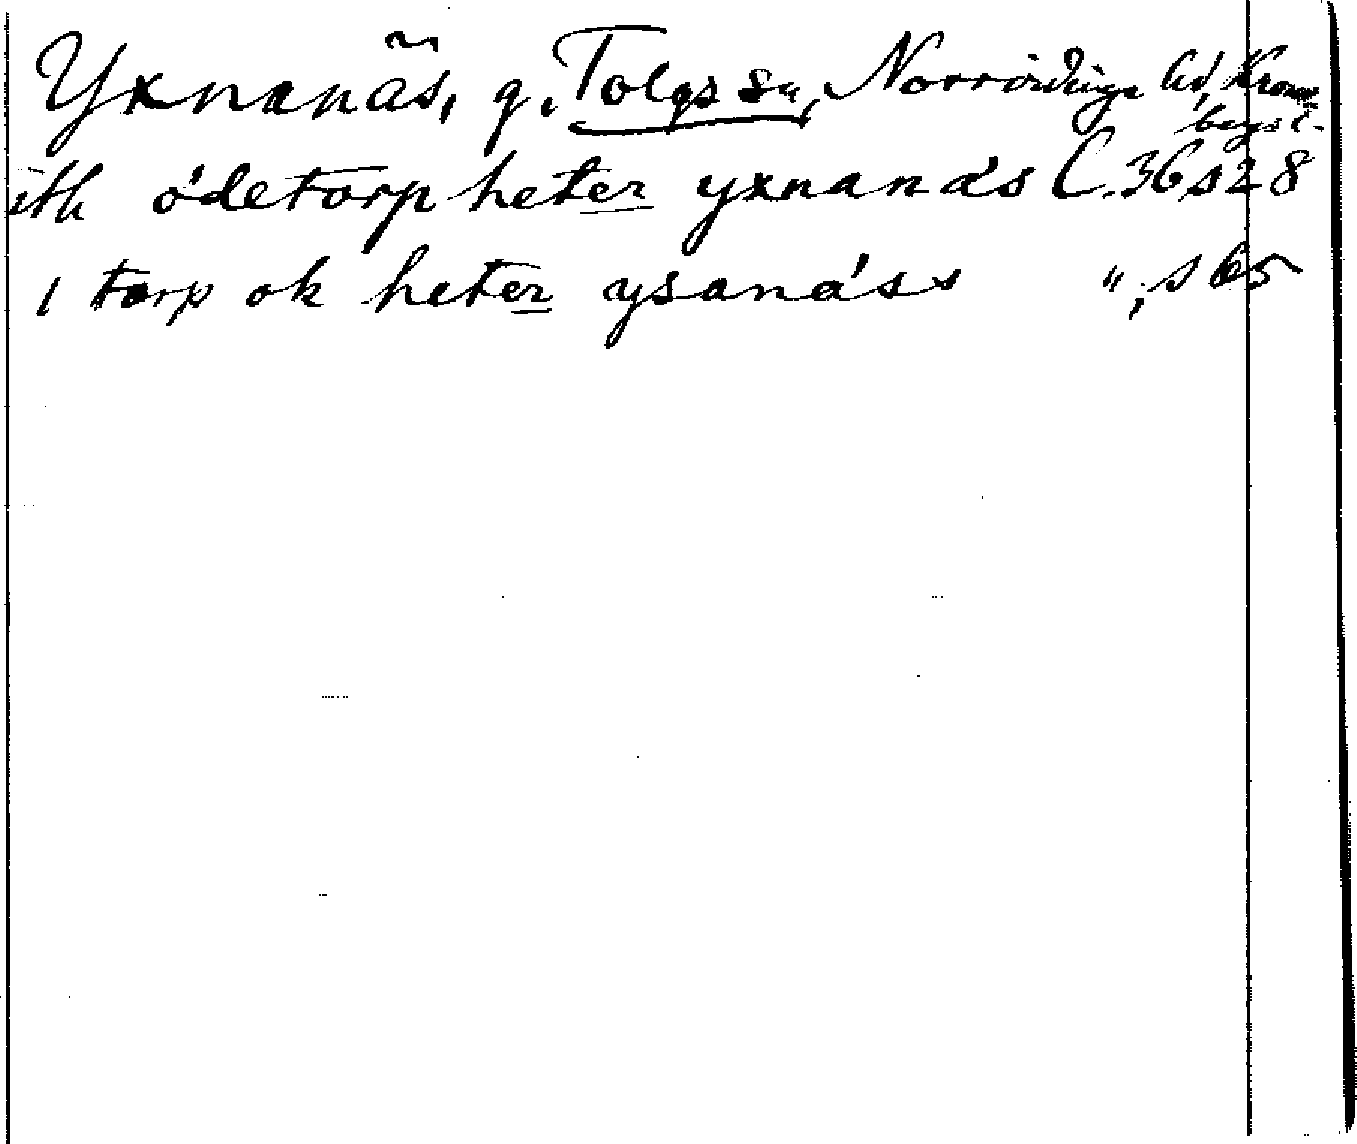 Yxnanäs, g. Tolgs sn, Norrvidinge hd, Krono-
bergs l.
ith ödetorp heter yxnanás C.36 s 28
1 torp ok heter ysanáss ", s 65